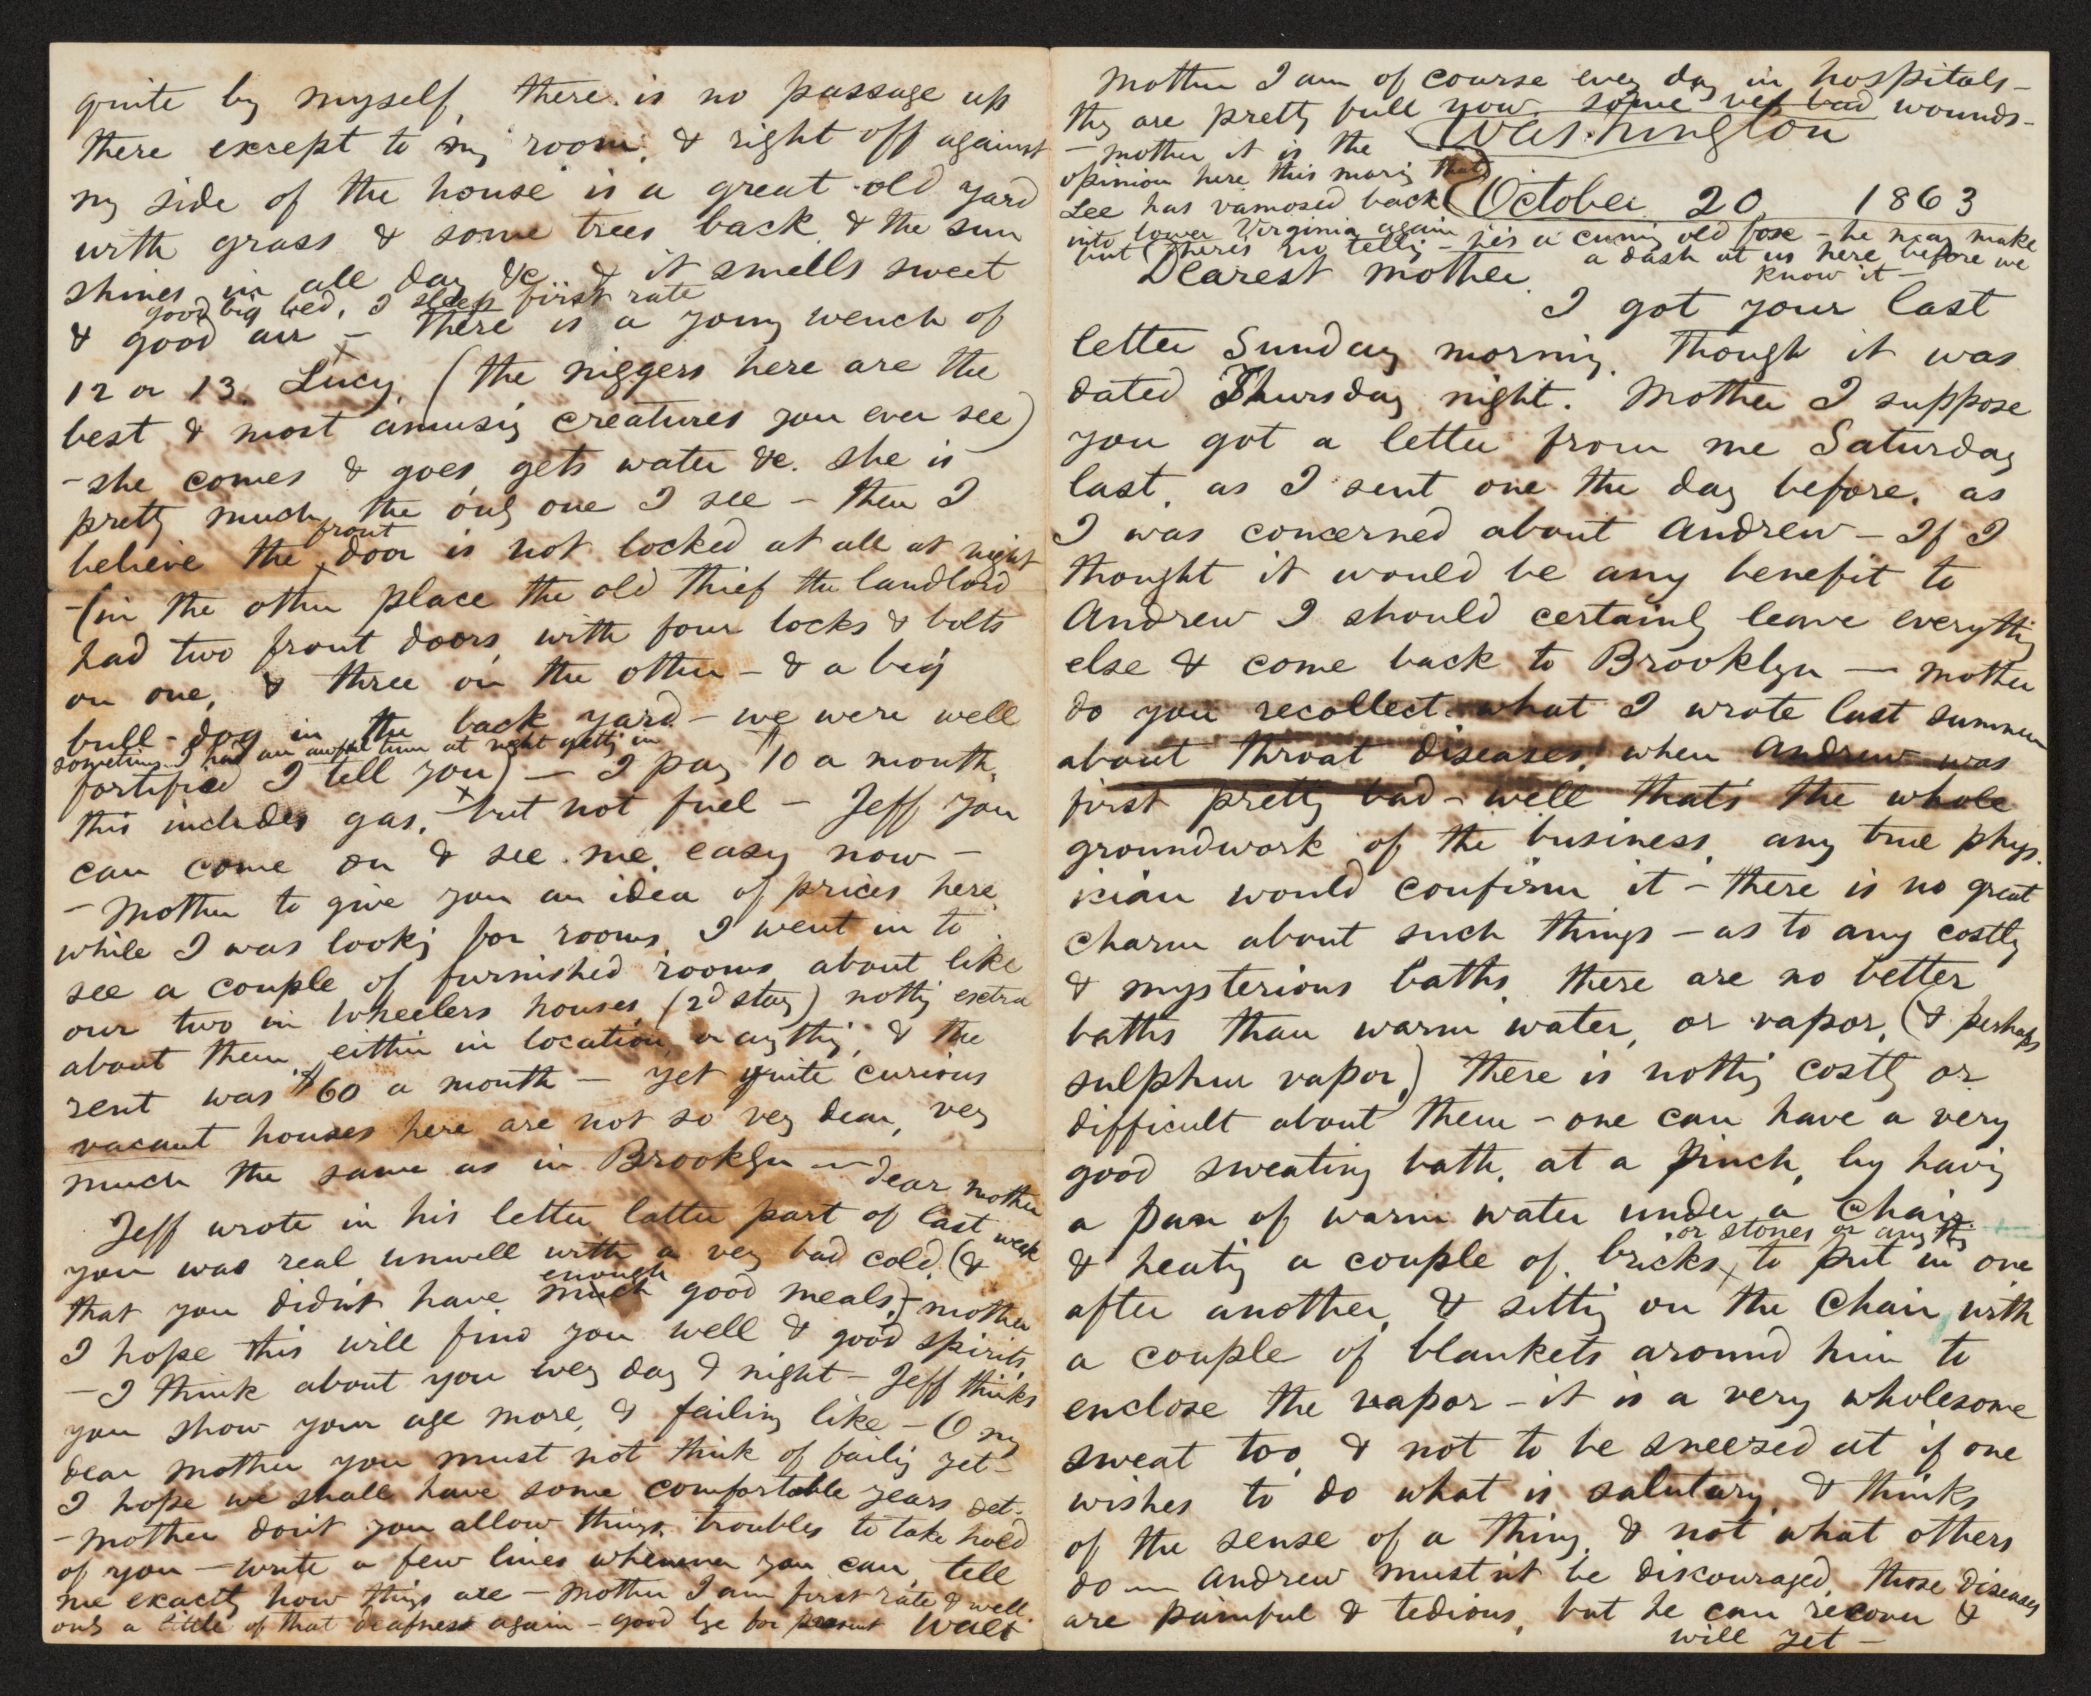 quite by myself, there is no passage up
there except to my room, & right off against
my side of the house is a great old yard
with grass & some trees back, & the sun
shines in all day &c. & it smells sweet
good big bed, I sleep first rate
& good air – there is a young wench of
12 or 13, Lucy, (the niggers here are the
best & most amusing creatures you ever see)
– she comes & goes, gets water &c. she is
pretty much the only one I see – then I
front
believe the door is not locked at all at night
– (in the other place the old thief the landlord
had two front doors, with four locks & bolts
on one, & three on the other – & a big
bull-dog in the back yard – we were well
sometimes I had an awful time at night getting in
fortified I tell you) – I pay $10 a month,
this includes gas, but not fuel – Jeff you
can come on & see me easy now –
– Mother to give you an idea of prices here,
while I was looking for rooms, I went in to
see a couple of furnished rooms about like
our two in Wheelers houses, (2d story) nothing extra
about them, either in location or anything, & the
rent was $60 a month – yet quite curious
vacant houses here are not so very dear, very
much the same as in Brooklyn — dear mother
Jeff wrote in his letter latter part of last week
you was real unwell with a very bad cold, (&
enough
that you didn't have much good meals,) – mother
I hope this will find you well & good spirits
– I think about you every day & night – Jeff thinks
you show your age more, & failing like – O my
dear mother you must not think of failing yet –
I hope we shall have some comfortable years yet –
– mother don't you allow things, troubles to take hold
of you – write a few lines whenever you can, tell
me exactly how things are – mother I am first rate & well
only a little of that deafness again – good bye for present Walt
Mother I am of course every day in hospitals –
they are pretty full now some very bad wounds –
Washington
– mother it is the
opinion here this morning that
Lee has vamosed back
October 20 1863
into lower Virginia again
but there's no telling – he's a cunning old fox – he may make
a dash at us here before we
know it –
Dearest mother.
I got your last
letter Sunday morning, though it was
dated Thursday night. Mother I suppose
you got a letter from me Saturday
last, as I sent one the day before, as
I was concerned about Andrew – If I
thought it would be any benefit to
Andrew I should certainly leave everything
else & come back to Brooklyn — mother
do you recollect what I wrote last summer
about throat diseases, when Andrew was
first pretty bad – well that's the whole
groundwork of the business, any true phys-
ician would confirm it – there is no great
charm about such things – as to any costly
& mysterious baths, there are no better
baths than warm water, or vapor, (& perhaps
sulphur vapor,) there is nothing costly or
difficult about them – one can have a very
good sweating bath, at a pinch, by having
a pan of warm water under a chair
or stones or anything
& heating a couple of bricks, to put in one
after another, & sitting on the chair with
a couple of blankets around him to
enclose the vapor – it is a very wholesome
sweat too & not to be sneezed at if one
wishes to do what is salutary, & thinks
of the sense of a thing, & not what others
do — Andrew mustn't be discouraged, those diseases
are painful & tedious, but he can recover &
will yet –